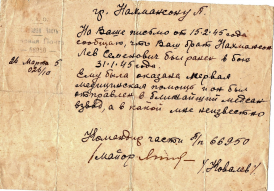 гр. Нахмансону Л.
На Ваше письмо от 15.2.45 года
сообщаю, что Ваш брат Нахмансон
Лев Семенович был ранен в бою
31-1-45 года.
Ему была оказана первая
медицинская помощь и он был
отправлен в ближайший медсан
взвод, а в какой мне неизвестно
24 марта 5
026/0
Командир части п/п 66950
/майор
/Ковалев/